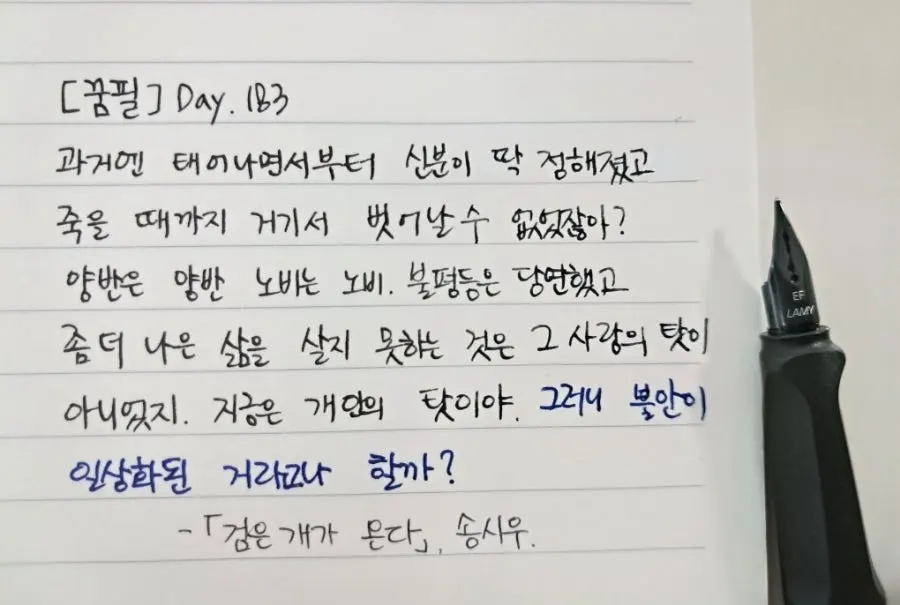 [꿈필] Day. 183
과거엔 태어나면서부터 신분이 딱 정해졌고
죽을 때까지 거기서 벗어날 수 없었잖아?
양반은 양반 노비는 노비. 불평등은 당연했고
좀 더 나은 삶을 살지 못하는 것은 그 사람의 탓이
아니었지. 지금은 개인의 탓이야. 그러니 불안이
일상화된 거라고나 할까?
-「검은 개가 온다」, 송시우.
EF
LAMY